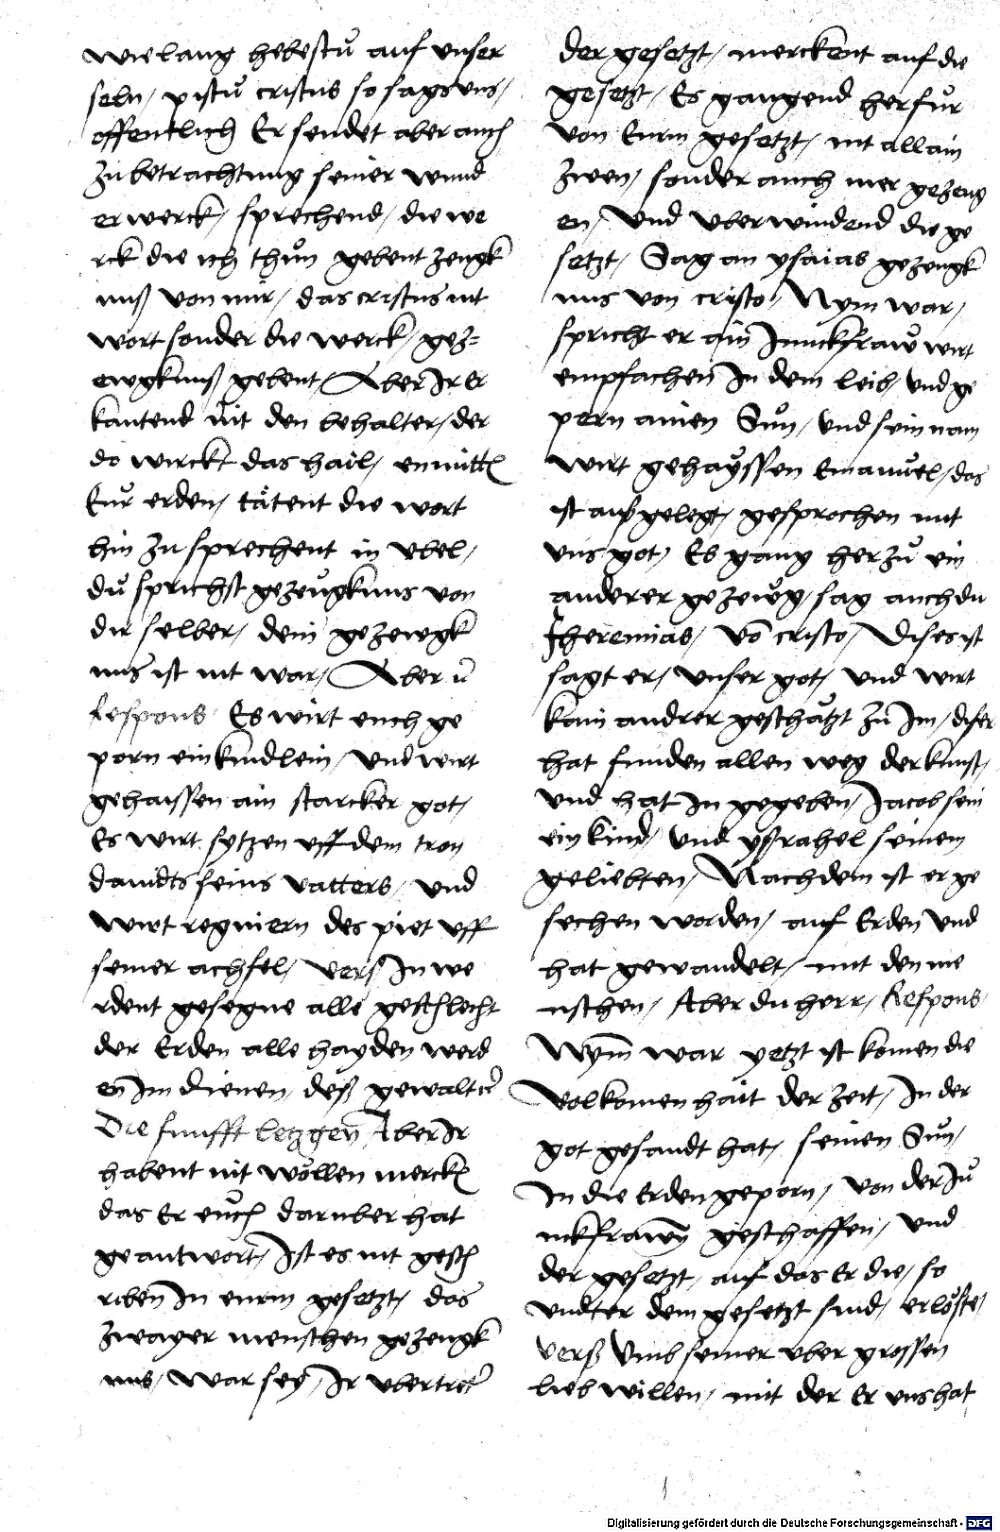 wie lang hebestu᷑ auf unser
seln / pistu᷑ cristus so sags uns /
offentlich Er sendet aber auch
zu betrachtung seiner wund
erwerck / sprechend / die we
rck die ich thu᷑n gebent zeugk
nuß von mir / das cristus nit
wort sonder die werck / gez=
ewgknuß gebent / Aber Ir Er
kantend nit den behalter / der
do wirckt das hail / en mitten
Eur erden / tätent die wort
hin zu sprechent in ubel /
du᷑ sprichst gezeu᷑gknus von
dir selber / dein gezewgk
nus ist nit war / Aber
Respons Es wirt euch ge
porn ein kindlein / und wirt
gehaissen ain starcker got /
Es wirt sytzen uff dem tron
dauidts seins vatters / und
wirt regniern des piet uff
seiner achsel / vers In we
rdent gesegne alle geschlecht
der Erden alle hayden werd
en Im dienen / deß gewalt
Die funfft letzgen Aber Ir
habent nit wöllen mercken
das Er euch daruber hat
geantwort / Ist es nit gesch
riben In eurm gesetzt / das
zwayer menschen gezeugk
nus / war sey / Ir ubertreter
der gesetzt / merckent auf die
gesetzt / Es gangend herfu᷑r
von Eurm gesetzt / nit allain
zwen / sonder auch mer gezeug
en / und uberwindend die ge
setzt / Sag an ysaias gezeugk
nus von cristo / Nym war /
spricht er ain Junckfraw wirt
empfachen In dem leib / und ge
pern ainen Su᷑n / und sein nam
wirt gehaÿssen Emanuel / das
ist auß geleget / gesprochen mit
uns got / Es gang herzu᷑ ein
anderer gezewg / sag auch du
Jheremias / vo᷑ cristo / Dises ist
sagt er / unser got / und wirt
kain andrer geschätzt zu Im / diser
hat funden allen weg der kunst /
und hat In gegeben / Jacob sein
ein kind / und yßrahel seinem
geliebten / Nachdem ist er ge
sechen worden / auf Erden und
hat gewandelt / mit den me
nschen / Aber du herr / Respons
Nym war yetzt ist komen die
volkomenhait der zeit / In der
got gesandt hat / seinen Su᷑n /
In die Erden geporn / von der Ju᷑
nckfrawen geschaffen / und
der gesetzt / auf das Er die / so
undter dem gesetzt sind / erlößte /
Verß Umb seiner uber grossen
lieb willen / mit der Er uns hat
Digitalisierung gefördert durch die Deutsche Forschungsgemeinschaft - DFG